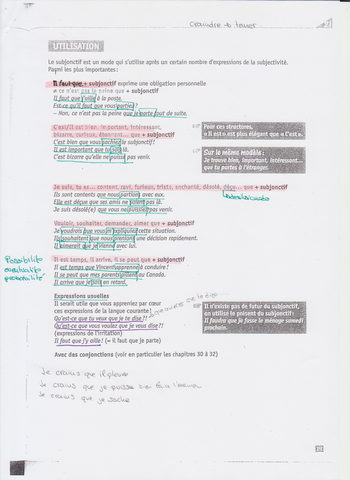 craindre
UTILISATION
Le subjonctif est un mode qui s'utilise après un certain nombre d'expressions de la subjectivité.
Parmi les plus importantes :
Il faut que + subjonctif exprime une obligation personnelle
≠ ce n'est pas la peine que + subjonctif
Il faut que j'aille à la poste.
Est-ce qu'il faut que vous partiez ?
– Non, ce n'est pas la peine que je parte tout de suite.
C'est/Il est bien, important, intéressant,
bizarre, curieux, étonnant... que + subjonctif
C'est bien que vous sachiez le subjonctif !
Il est important que tu sois là.
C'est bizarre qu'elle ne puisse pas venir.
Pour ces structures,
« Il est » est plus élégant que « C'est ».
Sur le même modèle :
Je trouve bien, important, intéressant...
que tu partes à l'étranger.
Je suis, tu es... content, ravi, furieux, triste, enchanté, désolé, déçu... que + subjonctif
Ils sont contents que nous partions avec eux.
Elle est déçue que ses amis ne soient pas là.
Je suis désolé(e) que vous ne puissiez pas venir.
Vouloir, souhaiter, demander, aimer que + subjonctif
Je voudrais que vous m'expliquiez cette situation.
Ils souhaitent que nous prenions une décision rapidement.
Il aimerait que je vienne avec lui.
Il est temps, il arrive, il se peut que + subjonctif
Il est temps que Vincent apprenne à conduire !
Il se peut que mes parents aillent au Canada.
Il arrive que je sois en retard.
Expressions usuelles
Il serait utile que vous appreniez par cœur
ces expressions de la langue courante !
Qu'est-ce que tu veux que je te dise ?!
Qu'est-ce que vous voulez que je vous dise ?!
(expressions de l'irritation)
Il faut que j'y aille ! (= il faut que je parte)
Il n'existe pas de futur du subjonctif,
on utilise le présent du subjonctif :
Il faudra que je fasse le ménage samedi
prochain.
Avec des conjonctions (voir en particulier les chapitres 30 à 32)
Je crains que il pleuve
Je crains que je puisse
Je crains que je sache